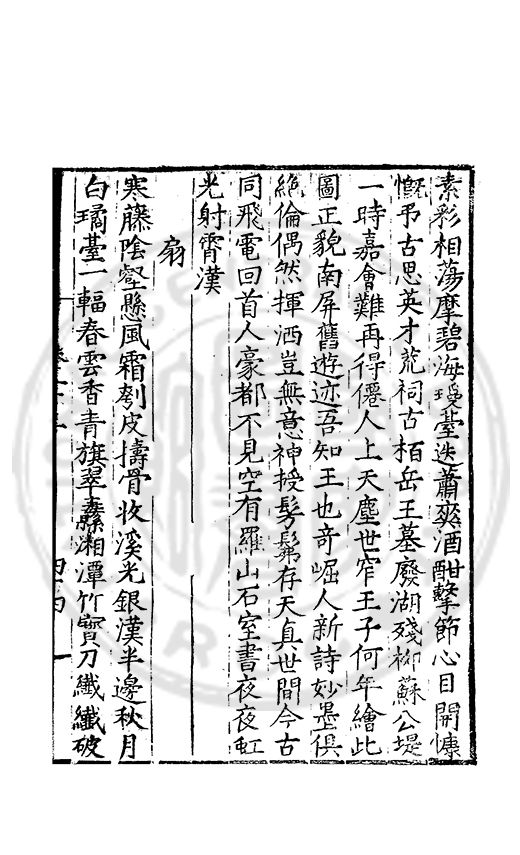 素彩相蕩摩碧海瑤臺迭蕭爽酒酣擊節心目開慷
慨弔古思英才荒祠古栢岳王墓廢湖殘柳蘇公堤
一時嘉會難再得僊人上天塵世窄王子何年繪此
圖正貌南屏舊遊迹吾知王也奇崛人新詩妙墨俱
絶倫偶然揮洒豈無意神授髣髴存天真世間今古
同飛電回首人豪都不見空有羅山石室書夜夜虹
光射霄漢
扇
寒藤陰壑懸風霜剝皮擣骨收溪光銀漢半邊秋月
白璚臺一輻春雲香青旗翠纛湘潭竹寳刀纖纖破